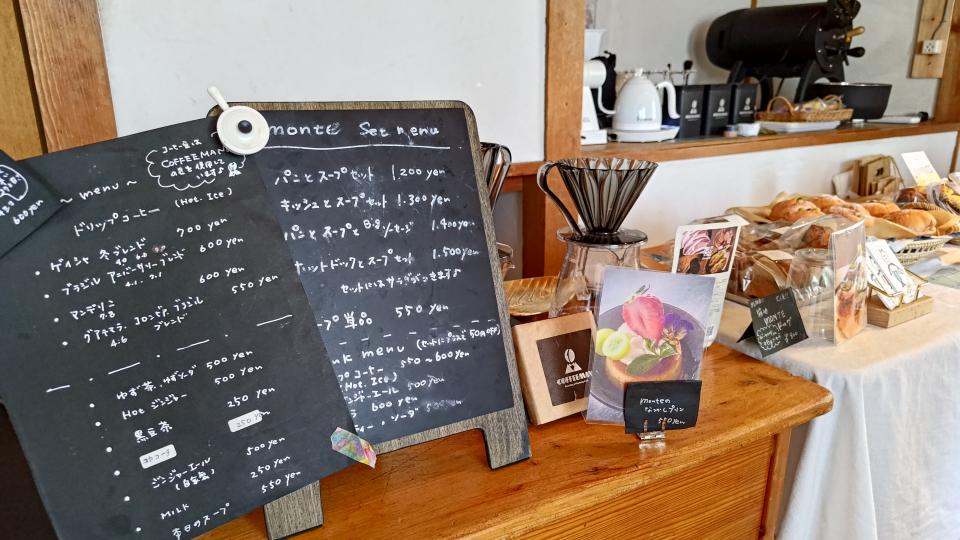 ~ menu ~
コーヒー豆は
COFFEEMAN
の豆を使用して
います
ドリップコーヒー (Hot. Ice)
ゲイシャ 冬ブレンド 700 yen
ブラジル アニバーサリーブレンド 600 yen
マンデリン 600 yen
グアテマラ コロンビア ブラジル 550 yen
ブレンド
ゆず茶. ゆずソーダ 500 yen
Hot ジンジャー 500 yen
黒豆茶 250 yen
250 yen
ジンジャーエール 500 yen
(自家製)
MILK 250 yen
本日のスープ 550 yen
600 yen
monte Set menu
パンとスープセット 1,200 yen
キッシュとスープセット 1,300 yen
パンとスープと 1,400 yen
ホットドックとスープセット 1,500 yen
セットにはサラダがつきます♪
プ 単品 550 yen
nk menu (セットにプラスで50円off)
コーヒー 550~600 yen
Hot. Ice)
500 yen
600 yen
ソーダ
COFFEEMAN
monteの
なつかしプリン
550 yen
MONTE